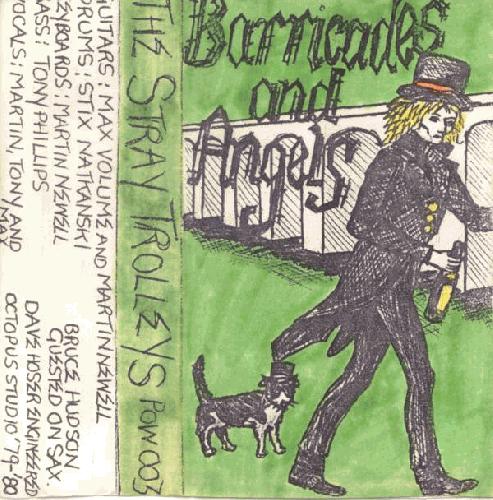 Barricades
and
Angels
THE STRAY TROLLEYS POW 003
GUITARS: MAX VOLUME AND MARTIN NEWELL
DRUMS: STIX NATKANSKI
KEYBOARDS: MARTIN NEWELL
BASS: TONY PHILLIPS
VOCALS: MARTIN, TONY AND
MAX
BRUCE HUDSON
GUESTED ON SAX.
DAVE HOSER ENGINEERED
OCTOPUS STUDIO '79-80